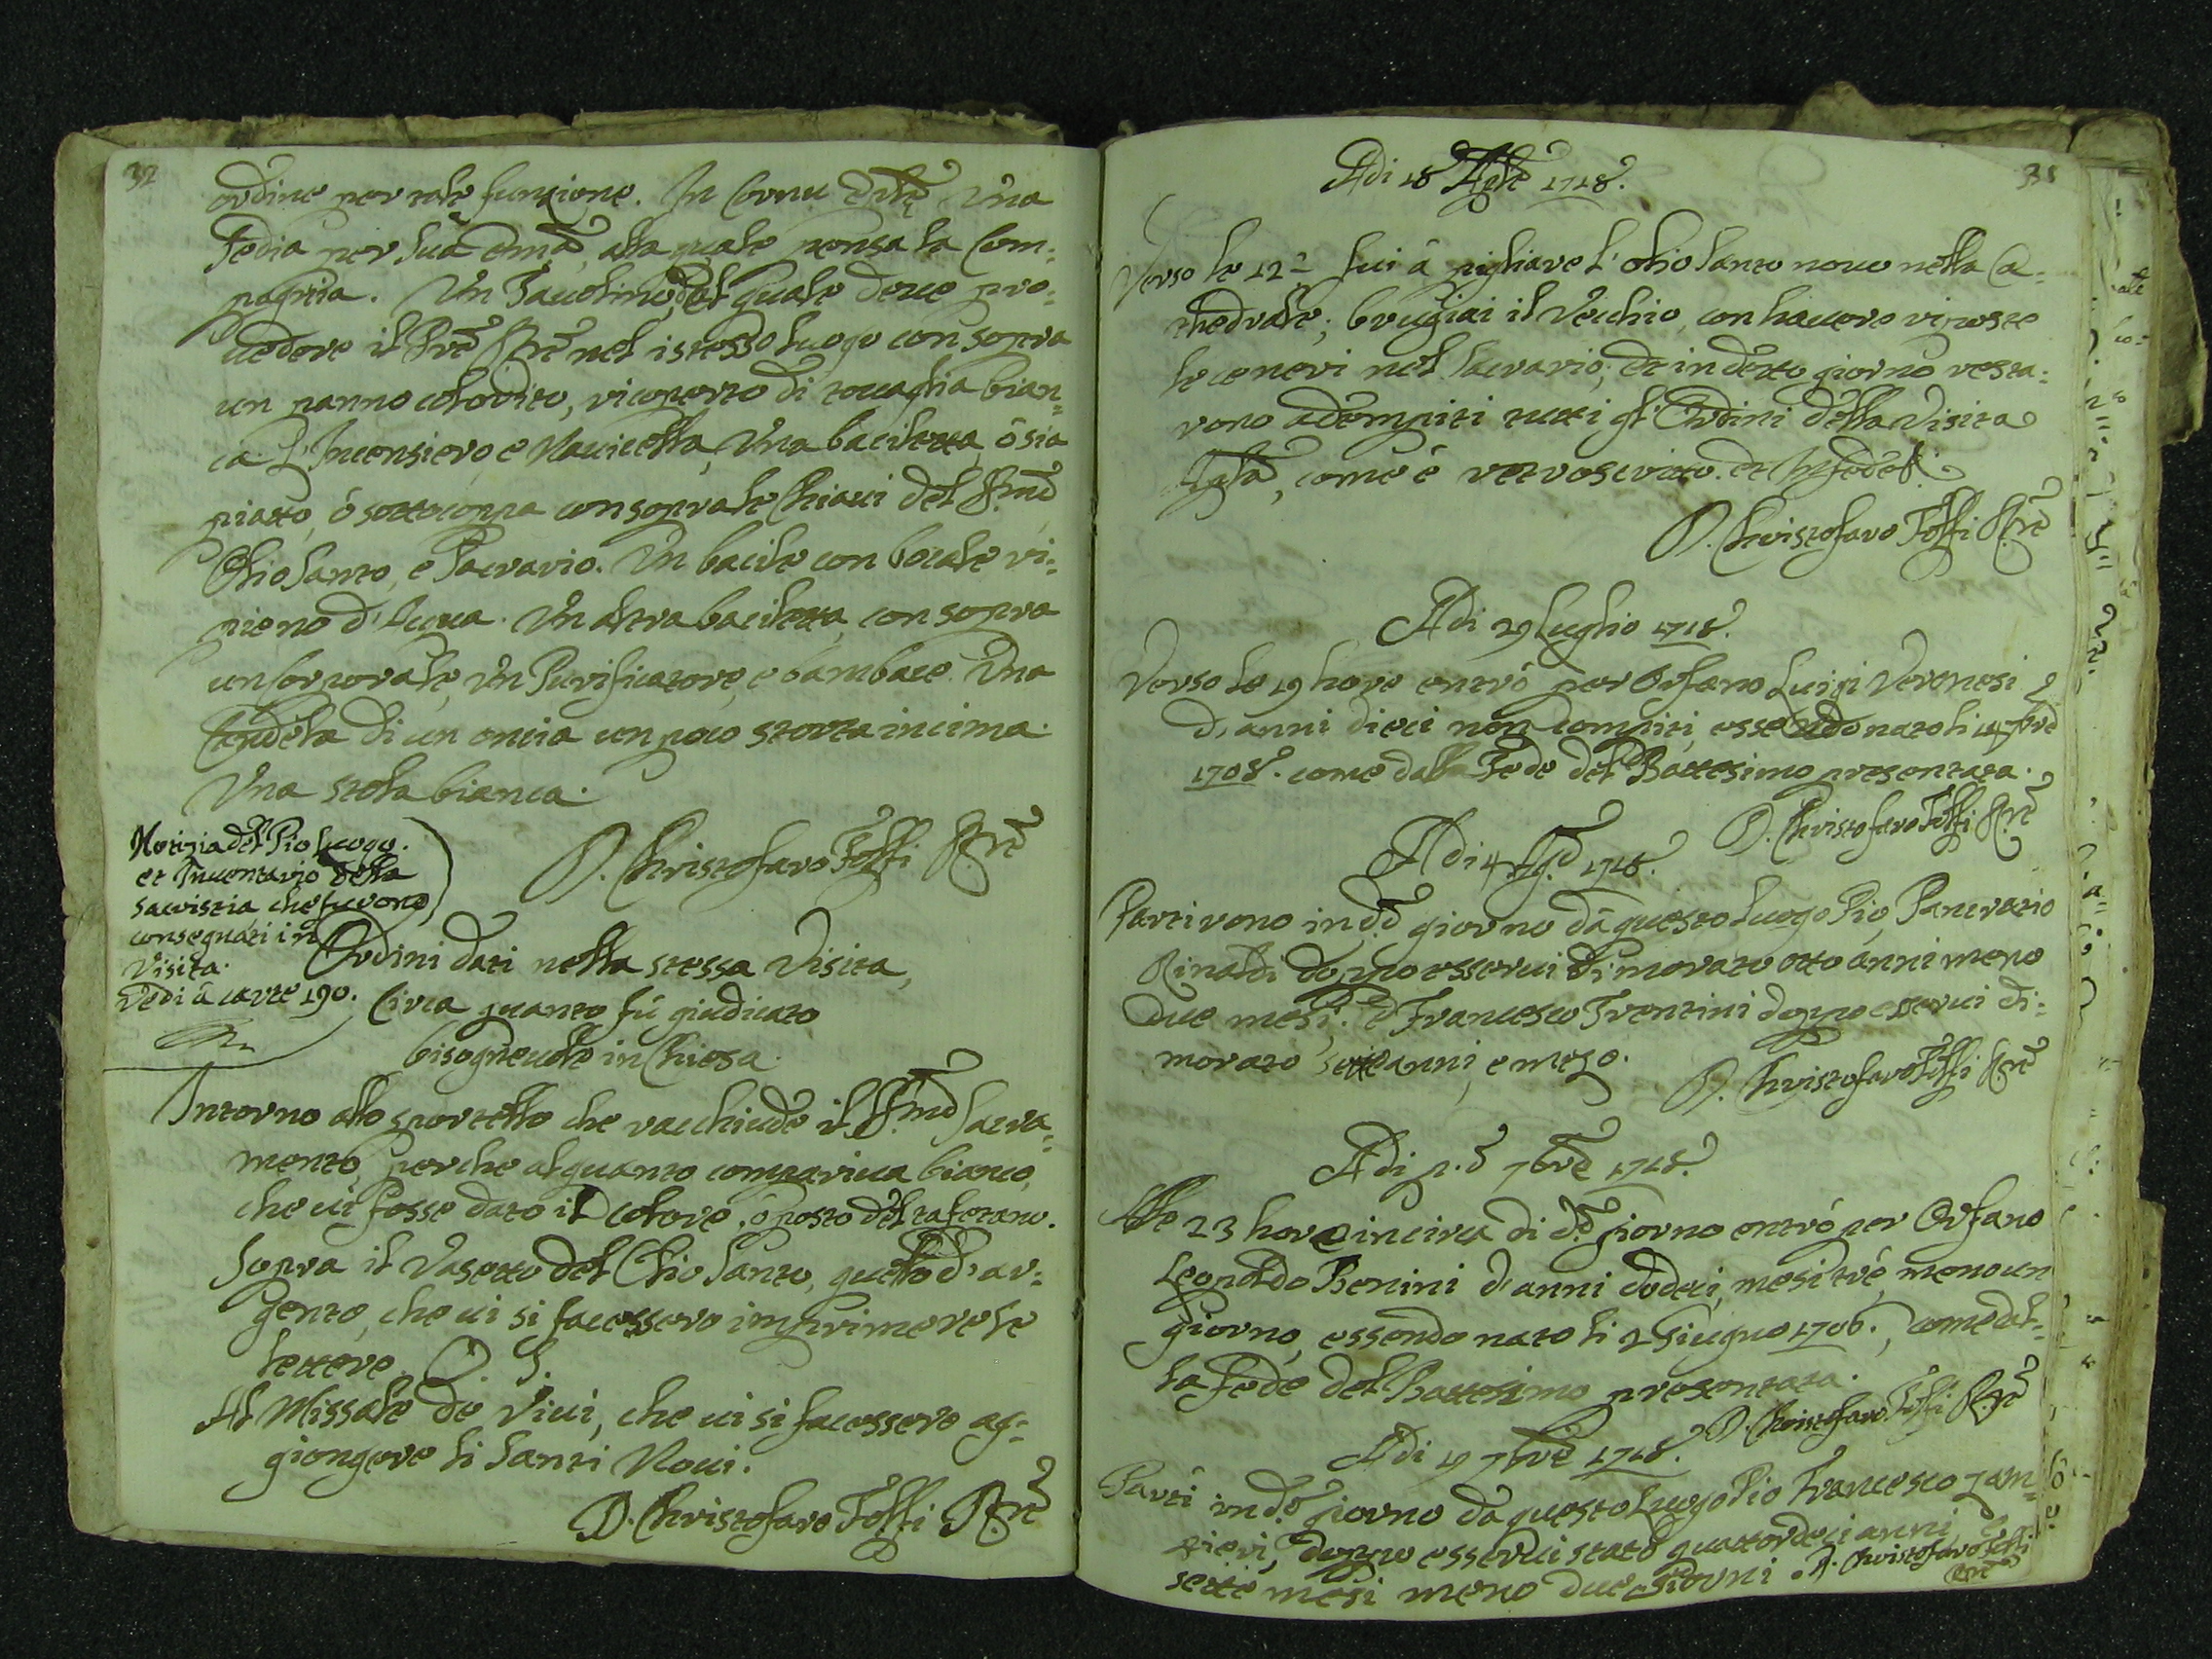 32
ordine per tale funzione. In Cornu Epłę Una
Sedia per Sua Emã, alla quale pensa la Com:
pagnia. Un Tavolino, del quale deve pro:
vedere il Prẽ Rrẽ nel istesso luogo con sopra
un panno colorito, ricoperto di tovaglia bian:
ca. L'Incensiero e Navicella, Una baciletta, ò sia
piatto, ò sottocoppa con sopra le Chiavi del SSmõ
Olio Santo, e Sacrario. Un bacile con bocale ri:
pieno d'Acqua. Un altra baciletta, con sopra
un Corporale, Un Purificatore, e bambace. Una
Candela di un oncia un poco storta in cima.
Una stola bianca.
D. Christofaro Toffi Rrẽ
Notizia del Pio Luogo.
et Inventario della
Sacristia, che furono
consegnati in
Visita.
Vedi à carte 190.
Ordini dati nella stessa Visita,
Circa quanto fù giudicato
bisognevole in Chiesa.
Intorno allo sportello che racchiude il SSmõ Sacra:
mento, perche alquanto compariva bianco,
che vi fosse dato il colore, ò posto del tafetano.
Sopra il Vasetto del Olio Santo, quello d'ar:
gento, che vi si facessero imprimere le
lettere. O. S.
Al Missale de Vivi, che vi si facessero ag:
giongere li Santi Novi.
D. Christofaro Toffi Rrẽ
Adi 18 Aple 1718.
Verso le 22 fui à pigliare l'olio Santo novo nella Ca:
thedrale; brugiai il Vecchio, con havere riposte
le ceneri nel Sacrario; et in detto giorno resta:
rono adempiti tutti gl'Ordini della Visita
come è retroscritto. et In fede
D. Christofaro Toffi Rrẽ
Adi 29 Luglio 1718.
Verso le 19 hore entrò per Orfano Luigi Veronesi
d'anni dieci non compiti, essendo nato li 14 7brẽ
1708. come dalla Fede del Battesimo presentata.
D. Christofaro Toffi Rrẽ
Adi 4 Agõ 1718.
Partirono in dõ giorno dà questo Luogo Pio, Pancrazio
Rinaldi doppo esservi dimorato otto anni meno
due mesi; e Francesco Trentini doppo esservi di:
morato sette anni, e mezo.
D. Christofaro Toffi Rrẽ
Adi p.õ 7brẽ 1718.
Alle 23 hore incirca di dõ giorno entrò per Orfano
Leopoldo Benini d'anni dodeci, mesi tré, meno un
giorno, essendo nato li 2 Giugno 1706., come dal:
la fede del Battesimo presentata.
D. Christofaro Toffi Rrẽ
Adi 19 7brẽ 1718.
Partì in dõ giorno dà questo Luogo Pio Francesco Zam:
pieri, doppo esservi stato quattordeci anni,
sette mesi meno due Giorni. D. Christofaro Toffi
Rrẽ